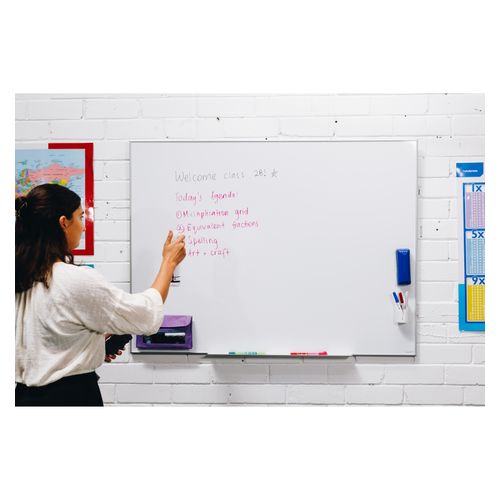 Welcome class 2B! ☆
Today's Agenda:
① Multiplication grid
② Equivalent fractions
Spelling
Art + craft
1X
5X
9X